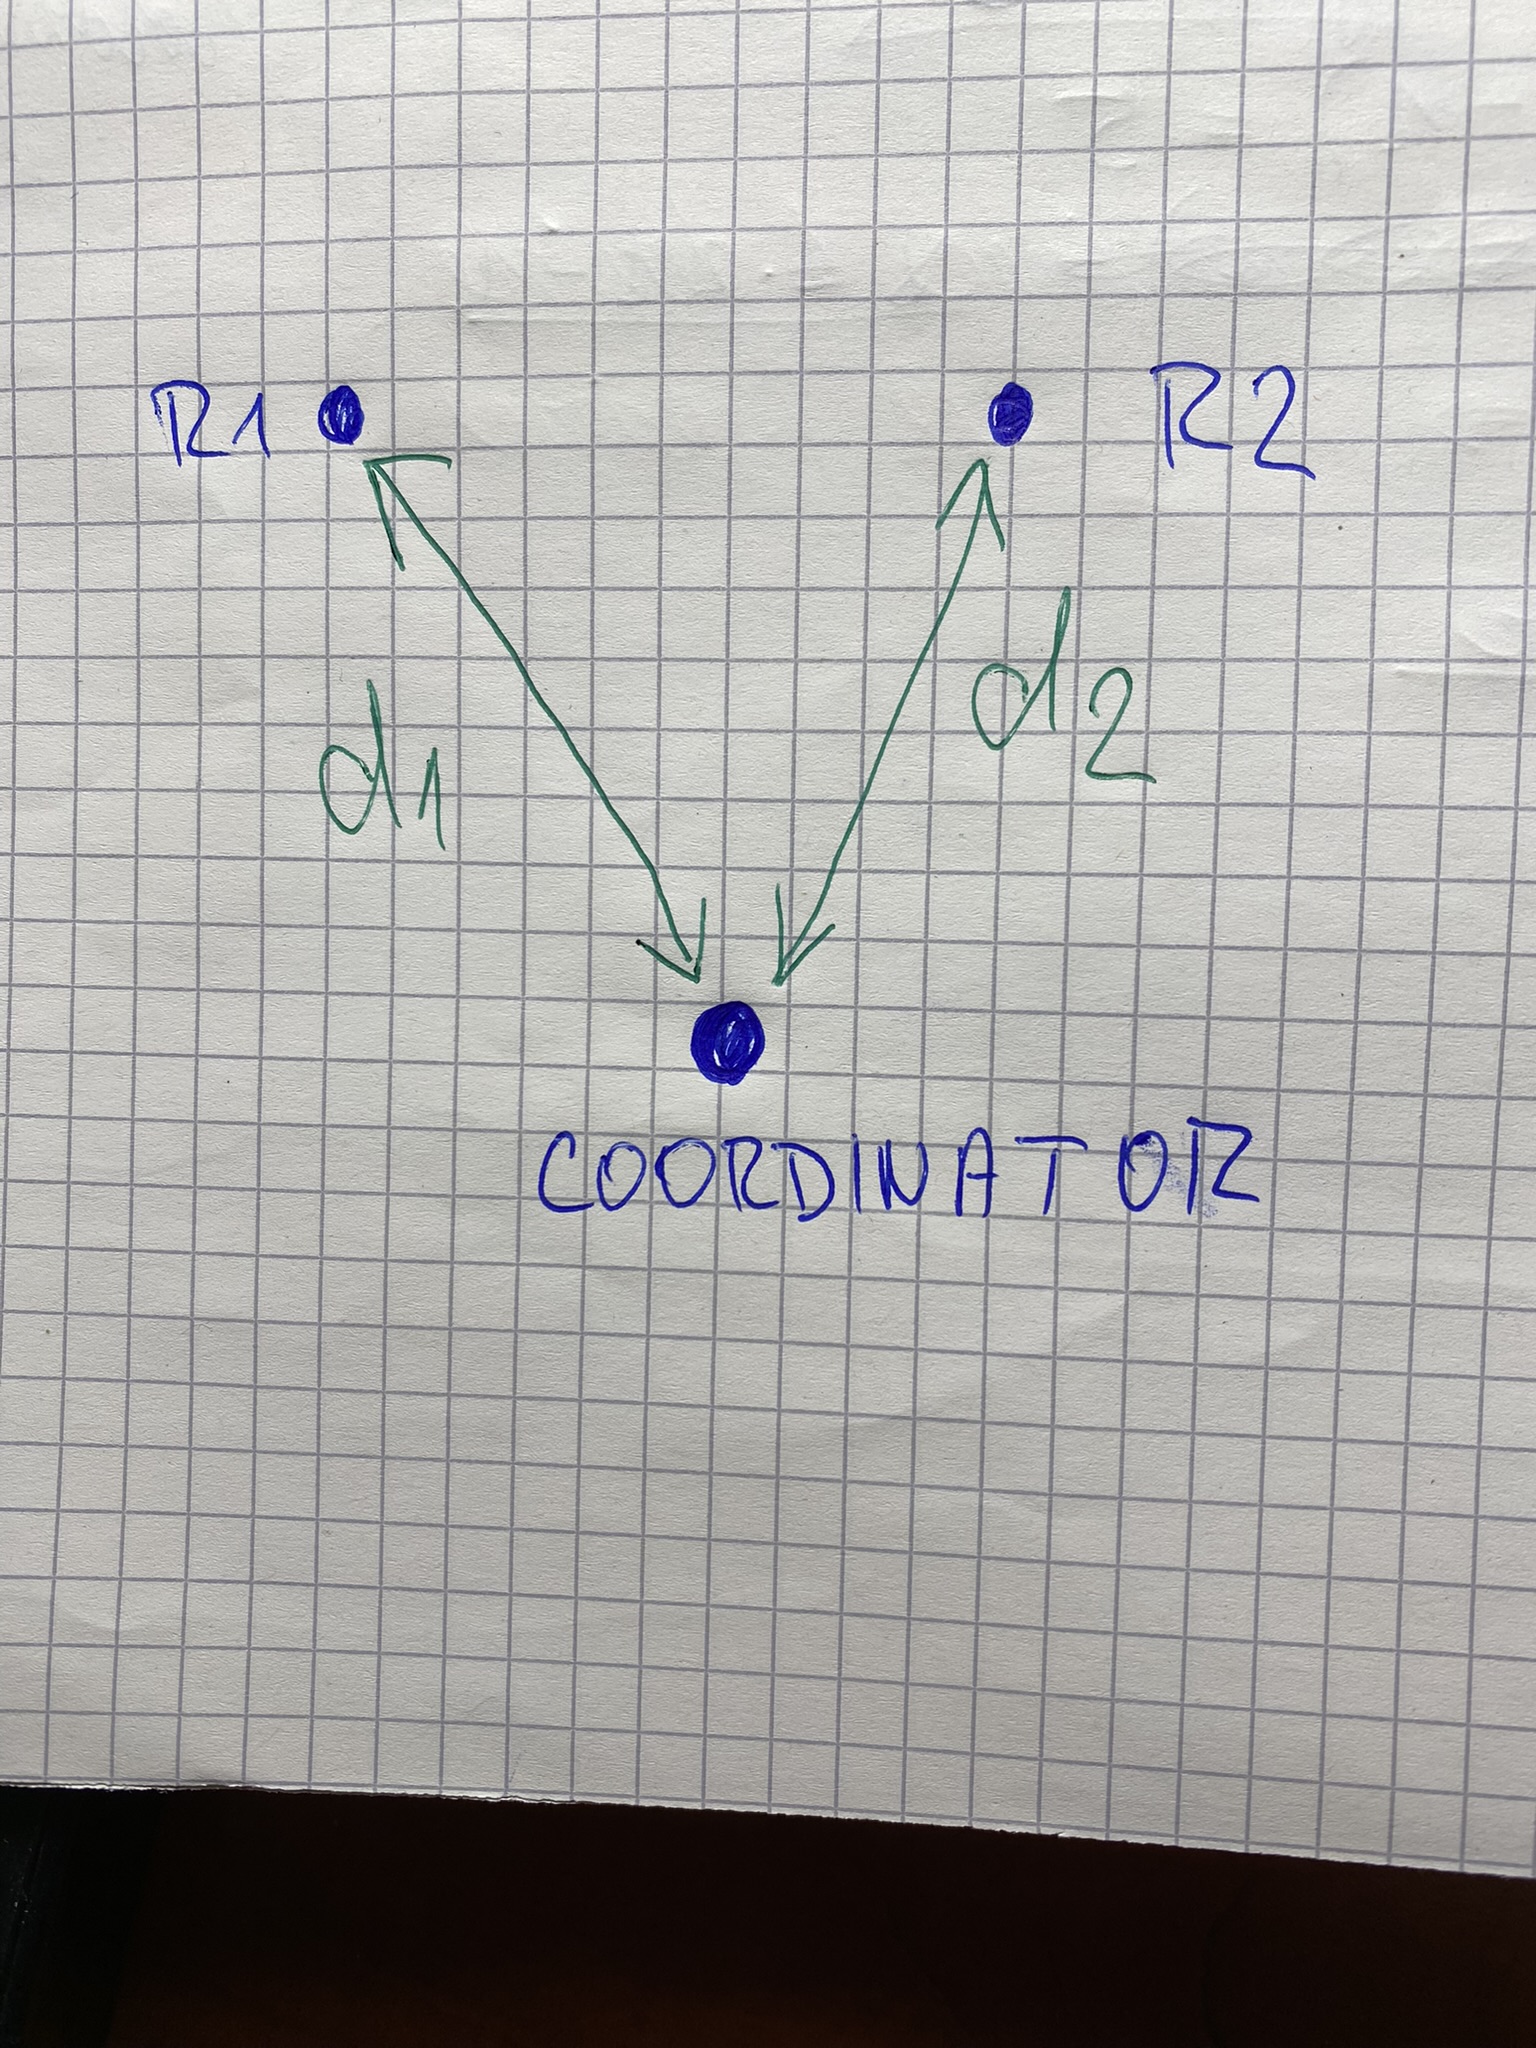 R1
R2
d1
d2
COORDINATOR